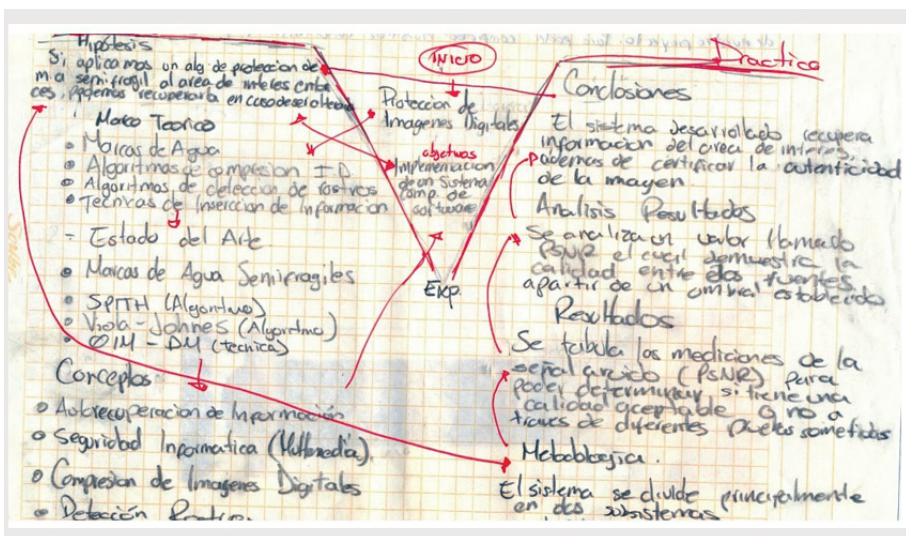 Hipótesis
Si aplicamos un alg de protección de
m.a semifragil al area de interes
podemos recuperarla en caso de ser alterada
Marco Teorico
Marcas de Agua
Algoritmos de compresion I.D
Algoritmos de detección de rostros
Tecnicas de Inserccion de Informacion
- Estado del Arte
Marcas de Agua Semifragiles
SPITH (Algoritmo)
Viola-Johnes (Algoritmo)
QIM - DM (tecnica)
Conceptos
Autorecuperacion de Información
Seguridad Informatica (Multimedia).
Compresion de Imagenes Digitales
Detección
INICIO
Protección de
Imagenes Digitales
objetivos
Implementacion
de un Sistema
comp. de
software
EXP.
Practico
Conclosiones
El sistema desarrollado recupera
informacion del area de interes,
ademas de certificar la autenticidad
de la imagen
Analisis Resultados
Se analiza un valor llamado
PSNR el cual demuestra la
calidad entre dos fuentes
apartir de un umbral establecido
Resultados
Se tabula las mediciones de la
señal a ruido (PSNR) para
poder determinar si tiene una
calidad aceptable o no a
traves de diferentes sometidas
Metodologia.
El sistema se divide principalmente
en dos subsistemas